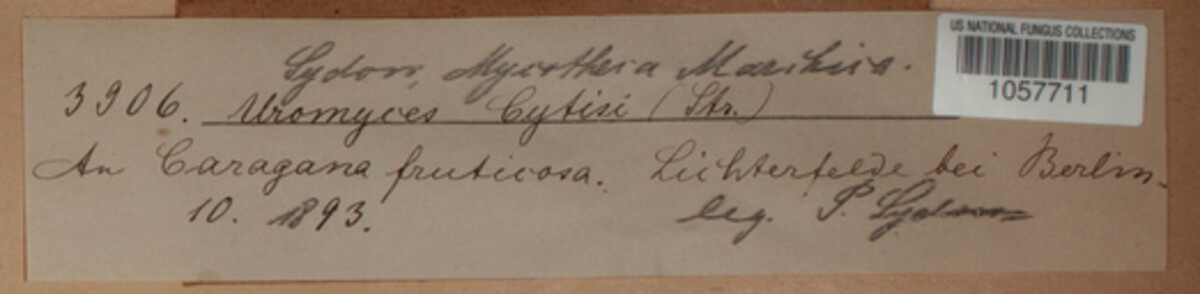 Sydow, Mycotheca Marchica.
US NATIONAL FUNGUS COLLECTIONS
1057711
3906. Uromyces Cytisi (Str.)
An Caragana fruticosa. Lichterfelde bei Berlin.
10. 1893. leg. P. Sydow